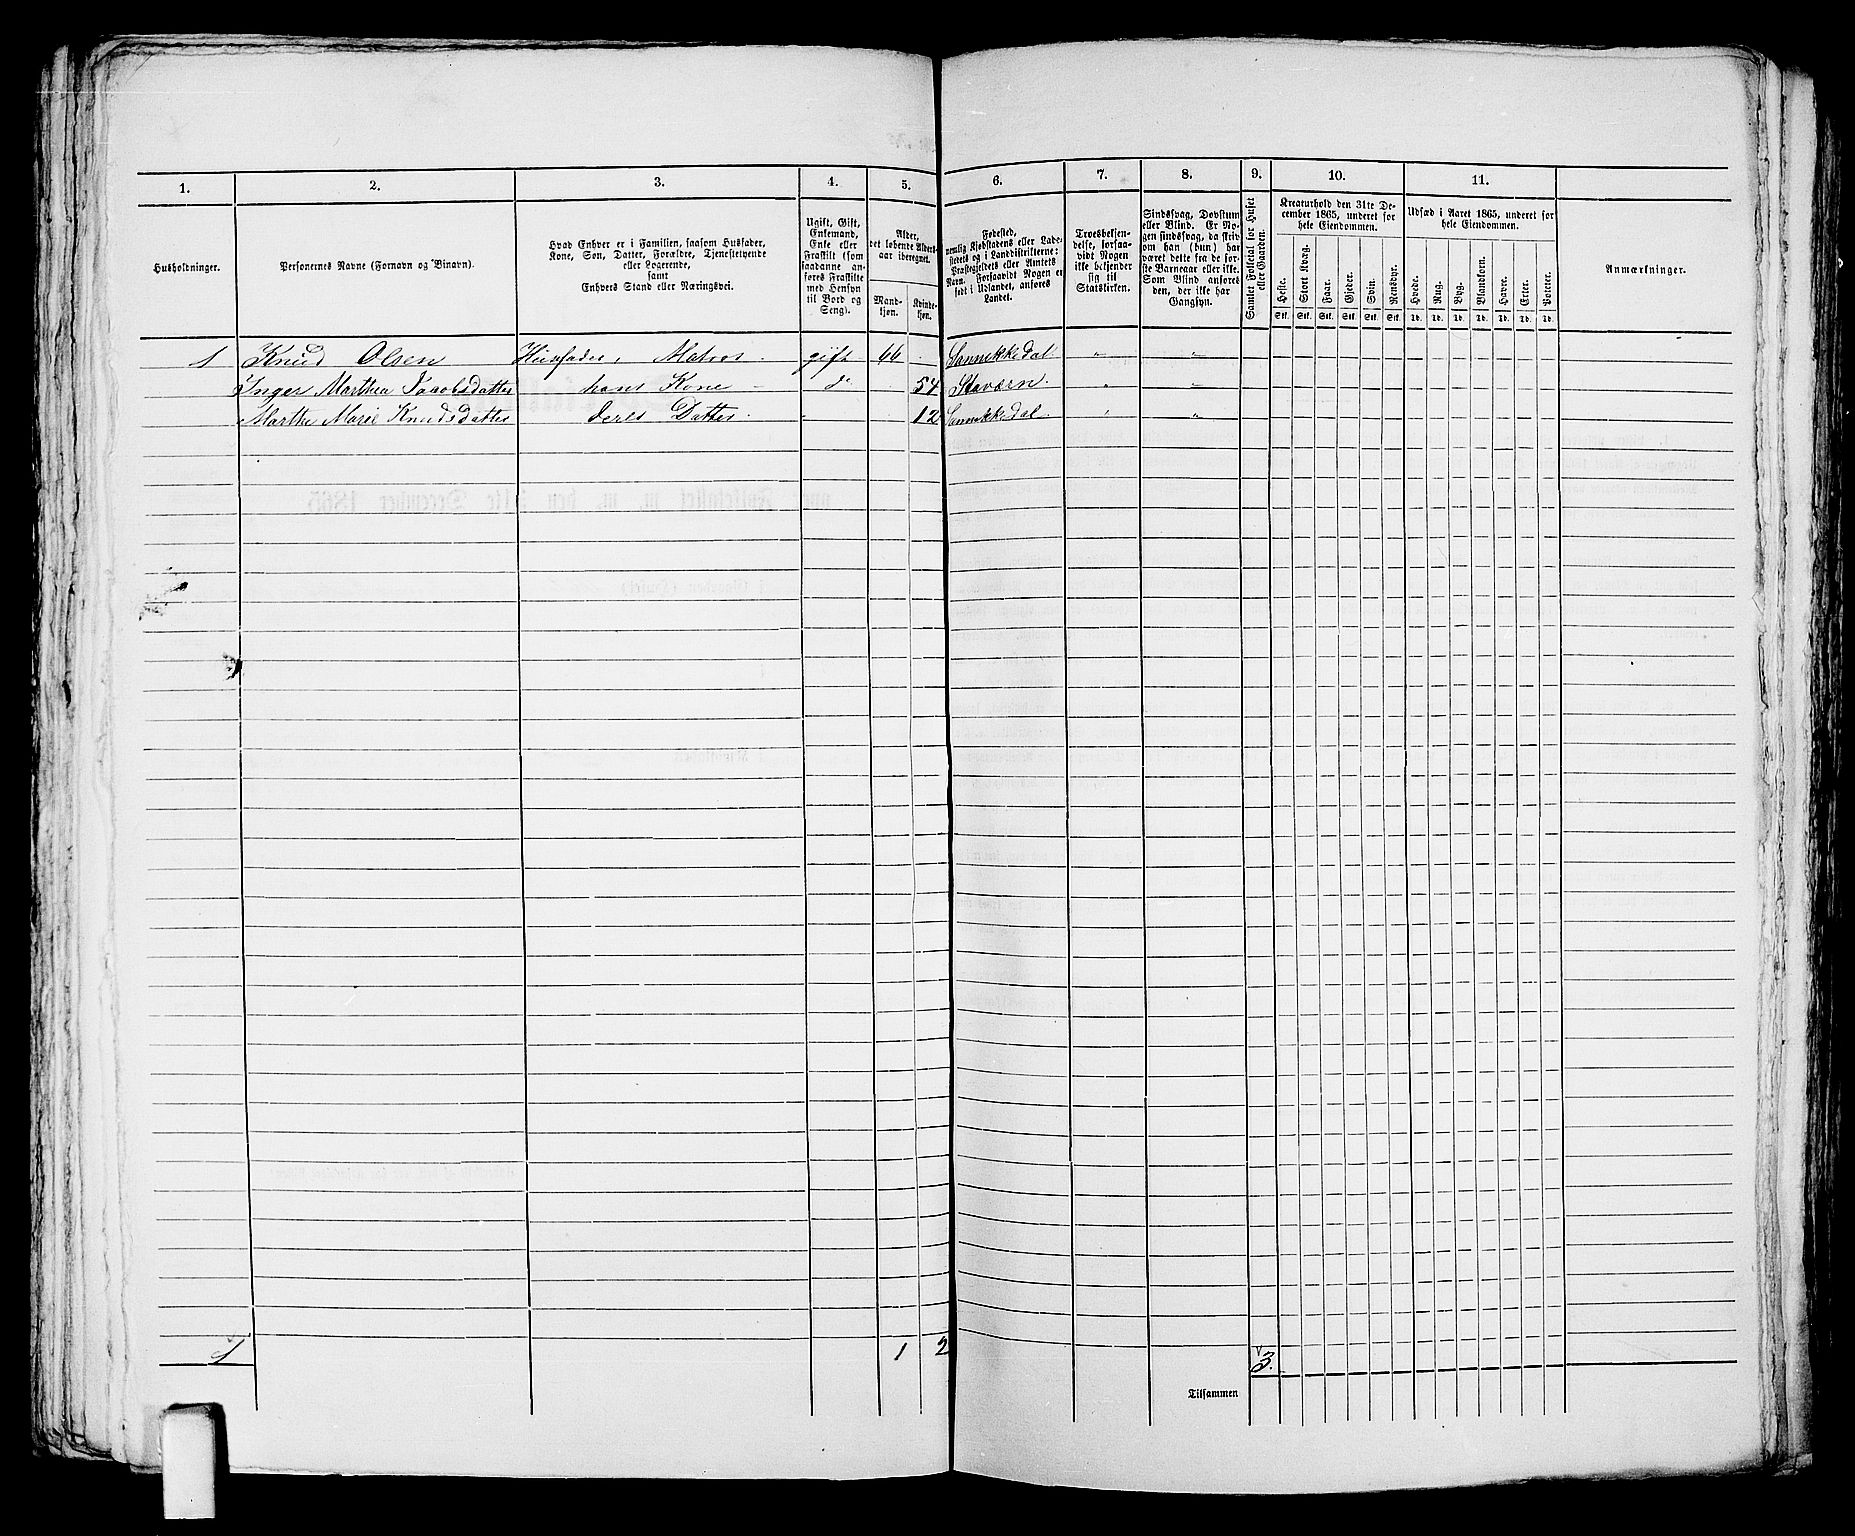 1.
2.
3.
4.
5.
6.
7.
8.
9.
10.
11.
Husholdninger.
Personernes Navne (Fornavn og Binavn).
Hvad Enhver er i Familien, saasom Husfader,
Kone, Søn, Datter, Forældre, Tjenestetyende
eller Logerende,
samt
Enhvers Stand eller Næringsvei.
Ugift, Gift,
Enkemand,
Enke eller
Fraskilt (som
saadanne an-
føres Fraskilte
med Hensyn
til Bord og
Seng).
Alder,
det løbende Alders-
aar iberegnet.
Mand-
kjøn.
Kvinde-
kjøn.
Fødested,
nemlig Kjøbstadens eller Lade-
stedets og i Landdistrikterne:
Præstegjeldets eller Amtets
Navn. Forsaavidt Nogen er
født i Udlandet, anføres
Landet.
Troesbekjen-
delse, forsaa-
vidt Nogen
ikke bekjender
sig til
Statskirken.
Sindssvag, Døvstum
eller Blind. Er No-
gen sindssvag, da skriv
om han (hun) har
været dette fra de før-
ste Barneaar eller ikke.
Som Blind anføres
den, der ikke har
Gangsyn.
Samlet Folketal for Huset
eller Gaarden.
Kreaturhold den 31te De-
cember 1865, underet for
hele Eiendommen.
Heste.
Stort Kvæg.
Faar.
Gjeder.
Svin.
Rensdyr.
Stk. Stk. Stk. Stk. Stk. Stk.
Udsæd i Aaret 1865, underet for
hele Eiendommen.
Hvede.
Rug.
Byg.
Blandkorn.
Havre.
Erter.
Poteter.
Td. Td. Td. Td. Td. Td. Td.
Anmærkninger.
1 Knud Olsen Huusfader, Matros. gift 66 Sannikkedal. " "
Inger Marthea Jacobsdatter hans Kone do 54 Staværn. " "
Marthe Marie Knudsdatter deres Datter. 12 Sannikkedal. " "
1 1 2 3.
Tilsammen